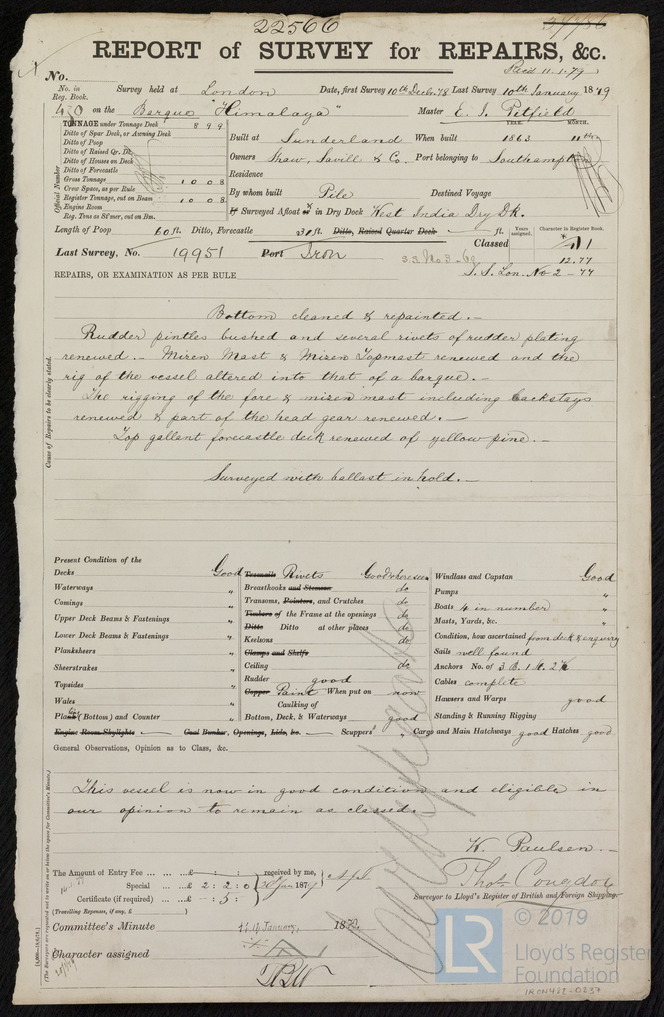 22566
REPORT of SURVEY for REPAIRS, &c.
Recd 11.1.79
No.
No. in Reg. Book. Survey held at London Date, first Survey 10th Decbr 78 Last Survey 10th January 1879
430 on the Barque "Himalaya" Master E. J. Petfield
TONNAGE under Tonnage Deck 899
Ditto of Spar Deck, or Awning Deck
Ditto of Poop
Ditto of Raised Qr. Dk.
Ditto of Houses on Deck
Ditto of Forecastle
Gross Tonnage 1008
Crew Space, as per Rule
Register Tonnage, cut on Beam 1008
Engine Room
Reg. Tons as St'mer, cut on Bm.
Official Number
YEAR. MONTH.
Built at Sunderland When built 1863 11th
Owners Shaw, Savill & Co. Port belonging to Southampton
Residence
By whom built Pile Destined Voyage
If Surveyed Afloat or in Dry Dock West India Dry Dk.
Length of Poop 60 ft. Ditto, Forecastle 231 ft. Ditto, Raised Quarter Deck ft.
Years assigned. Character in Register Book.
Last Survey, No. 19951 Port Iron Classed A1
12.77
S.S. Lon. No 2 - 77
REPAIRS, OR EXAMINATION AS PER RULE
Cause of Repairs to be clearly stated.
Bottom cleaned & repainted.-
Rudder pintles bushed and several rivets of rudder plating
renewed.- Mizen Mast & Mizen Topmast renewed and the
rig of the vessel altered into that of a barque.-
The rigging of the fore & mizen mast including backstays
renewed & part of the head gear renewed.-
Top gallant forecastle deck renewed of yellow pine.-
Surveyed with ballast in hold.-
Present Condition of the
Decks Good
Waterways "
Comings "
Upper Deck Beams & Fastenings "
Lower Deck Beams & Fastenings "
Planksheers "
Sheerstrakes "
Topsides "
Wales "
Plating (Bottom) and Counter "
Engine Room Skylights Coal Bunker, Openings, Lids, &c. Scuppers "
Treenails Rivets Good where seen
Breasthooks and Stemson do
Transoms, Pointers, and Crutches do
Timbers of the Frame at the openings do
Ditto Ditto at other places do
Keelsons do
Clamps and Shelfs
Ceiling do
Rudder good
Copper Paint When put on now
Caulking of
Bottom, Deck, & Waterways good
Windlass and Capstan Good
Pumps "
Boats 4 in number "
Masts, Yards, &c. "
Condition, how ascertained from deck & enquiry
Sails well found
Anchors No. of 3 B. 1 St. 2 K
Cables complete
Hawsers and Warps good
Standing & Running Rigging
Cargo and Main Hatchways good Hatches good
General Observations, Opinion as to Class, &c.
This vessel is now in good condition and eligible in
our opinion to remain as classed.
W. Paulsen
Thos. Congdon
Surveyor to Lloyd's Register of British and Foreign Shipping.
The Amount of Entry Fee ... ... £ : : received by me,
Special ... £ 2 : 2 : 0 20 Jan 1879
Certificate (if required) ... £ - : 5 :
(Travelling Expenses, if any, £ )
Committee's Minute 14th January, 1879.
Character assigned
(The Surveyors are requested not to write on or below the space for Committee's Minute.)
© 2019
LR
Lloyd's Register
Foundation
IRON422-0237